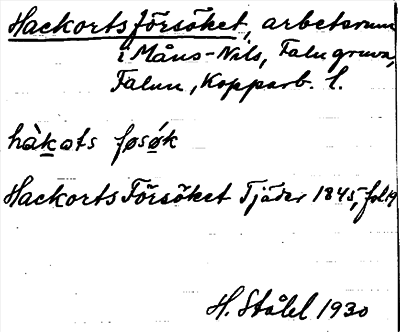 Hackortsförsöket, arbetsrum
i Måns-Nils, Falu gruva,
Falun, Kopparb. l.
hàkots føsøk
Hackorts Försöket Tjäder 1845, fol 19
H. Ståhl 1930